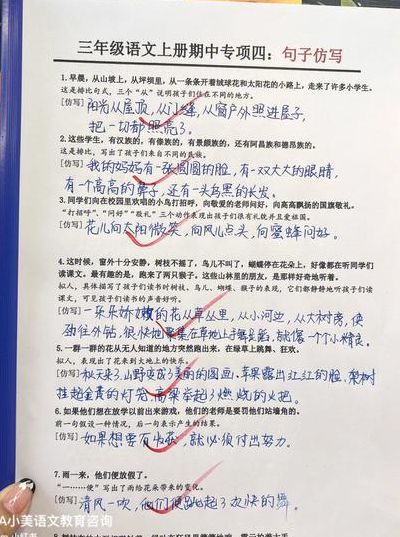 三年级语文上册期中专项四：句子仿写
1.早晨，从山坡上，从坪坝里，从一条条开着绒球花和太阳花的小路上，走来了许多小学生。
这是排比句式，三个“从”说明孩子们住在不同的地方。
[仿写]阳光从屋顶，从门缝，从窗户外照进屋子，
把一切都照亮了。
2.这些学生，有汉族的，有傣族的，有景颇族的，还有阿昌族和德昂族的。
这是排比，写出了孩子们来自不同的民族。
[仿写]我的妈妈有一张圆圆的脸，有一双大大的眼睛，
有一个高高的鼻子，还有一头乌黑的长发。
3.同学们向在校园里欢唱的小鸟打招呼，向敬爱的老师问好，向高高飘扬的国旗敬礼。
“打招呼”、“问好”“敬礼”三个动作表现出孩子们很有礼貌并且爱祖国。
[仿写]花儿向太阳微笑，向风儿点头，向蜜蜂问好。
4.这时候，窗外十分安静，树枝不摇了，鸟儿不叫了，蝴蝶停在花朵上，好像都在听同学们
读课文。最有趣的是，跑来了两只猴子。这些山林里的朋友，是那样好奇地听着。
拟人，具体描写了孩子们读书时树枝、鸟儿、蝴蝶、猴子的表现，它们都静静地听孩子们读
课文，可见孩子们读书的声音好听。
[仿写]一朵朵娇嫩的花从草丛里，从小河边，从大树旁，使
劲往外钻，很快地聚集在草地上手舞足蹈，就像一个个小精灵。
5.一群一群的花从无人知道的地方突然跑出来，在绿草上跳舞、狂欢。
拟人，表现出了花来到大地上的快乐。
[仿写]秋天来了，山野变成了美丽的图画，苹果露出红红的脸，梨树
挂起金黄的灯笼，高粱举起了燃烧的火把。
6.如果他们想在放学以前出来游戏，他们的老师是要罚他们站墙角的。
前一句假设一种情况，后一句表示产生的结果。
[仿写]如果想要有收获，就必须付出努力。
7.雨一来，他们便放假了。
“一……便”写出了雨给花朵带来的变化。
[仿写]清风一吹，他们便跳起了欢快的舞。
小美语文教育咨询